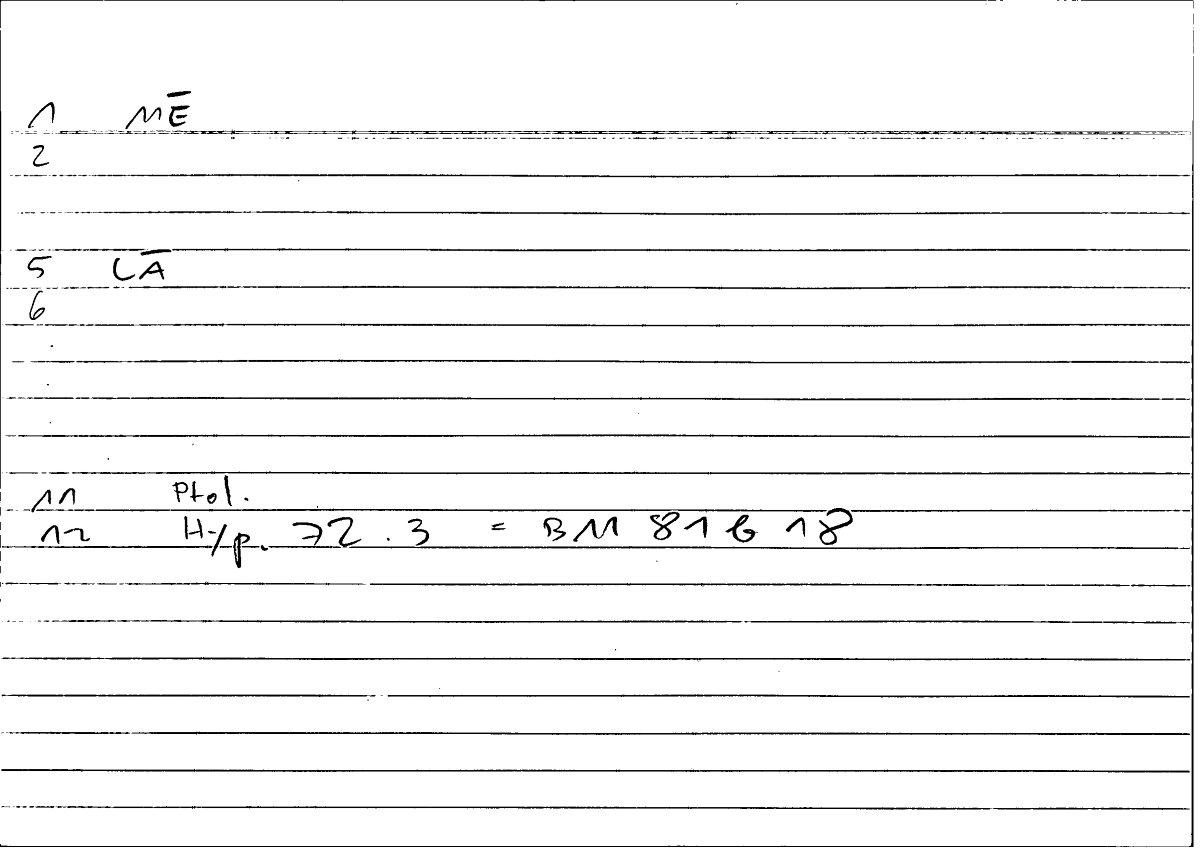 1 ME̅
2
5 LA̅
6
.
.
.
11 Ptol.
12 Hyp. 72.3 = BM 81 6 18